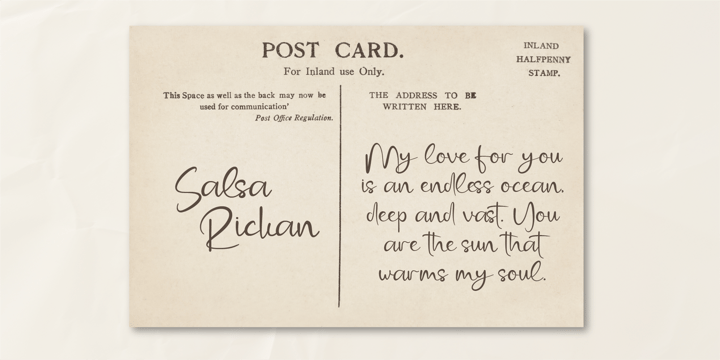 POST CARD.
For Inland use Only.
INLAND
HALFPENNY
STAMP.
This Space as well as the back may now be
used for communication'
Post Office Regulation.
THE ADDRESS TO BE
WRITTEN HERE.
Salsa
Rickan
My love for you
is an endless ocean.
deep and vast. You
are the sun that
warms my soul.